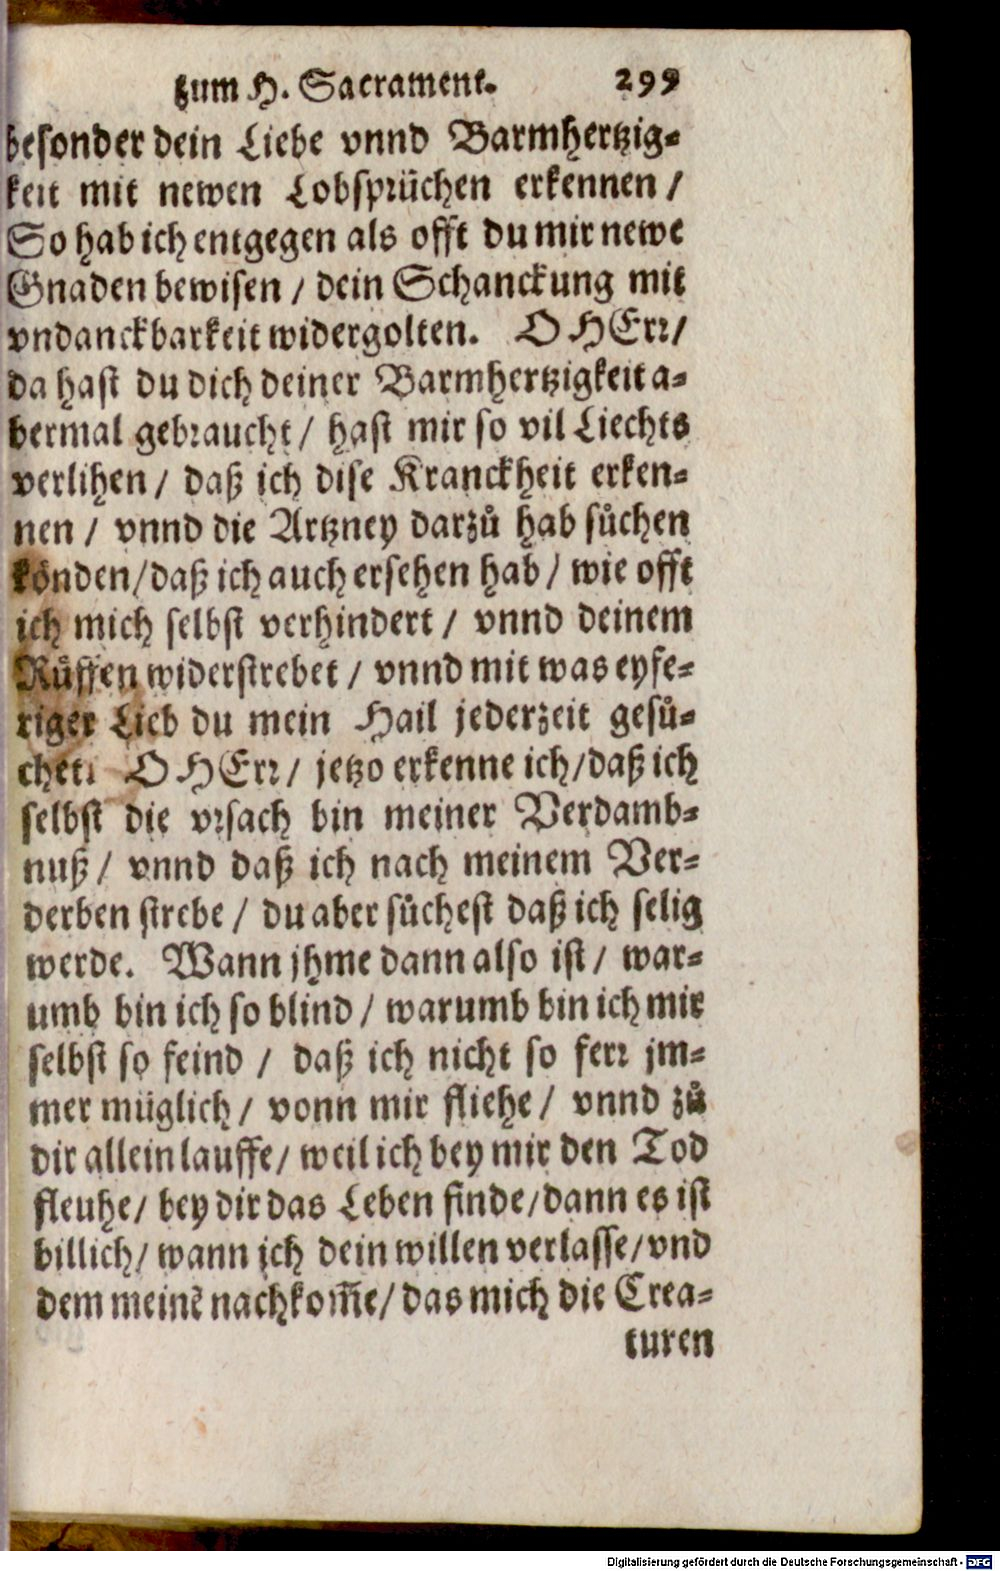 zum H. Sacrament. 299
besonder dein Liebe vnnd Barmhertzig-
keit mit newen Lobsprüchen erkennen /
So hab ich entgegen als offt du mir newe
Gnaden bewisen / dein Schanckung mit
vndanckbarkeit widergolten. O HErr/
da hast du dich deiner Barmhertzigkeit a-
bermal gebraucht / hast mir so vil Liechts
verlihen / daß ich dise Kranckheit erken-
nen / vnnd die Artzney darzů hab sůchen
könden/daß ich auch ersehen hab / wie offt
ich mich selbst verhindert / vnnd deinem
Růffen widerstrebet / vnnd mit was eyfe-
riger Lieb du mein Hail jederzeit gesů-
chet. O HErr/ jetzo erkenne ich/daß ich
selbst die vrsach bin meiner Verdamb-
nuß / vnnd daß ich nach meinem Ver-
derben strebe / du aber sůchest daß ich selig
werde. Wann jhme dann also ist / war-
umb bin ich so blind / warumb bin ich mir
selbst so feind / daß ich nicht so ferr jm-
mer müglich / vonn mir fliehe / vnnd zů
dir allein lauffe/ weil ich bey mir den Tod
fleuhe/ bey dir das Leben finde/dann es ist
billich/ wann ich dein willen verlasse/vnd
dem meinẽ nachkom̃e/ das mich die Crea-
turen
Digitalisierung gefördert durch die Deutsche Forschungsgemeinschaft - DFG